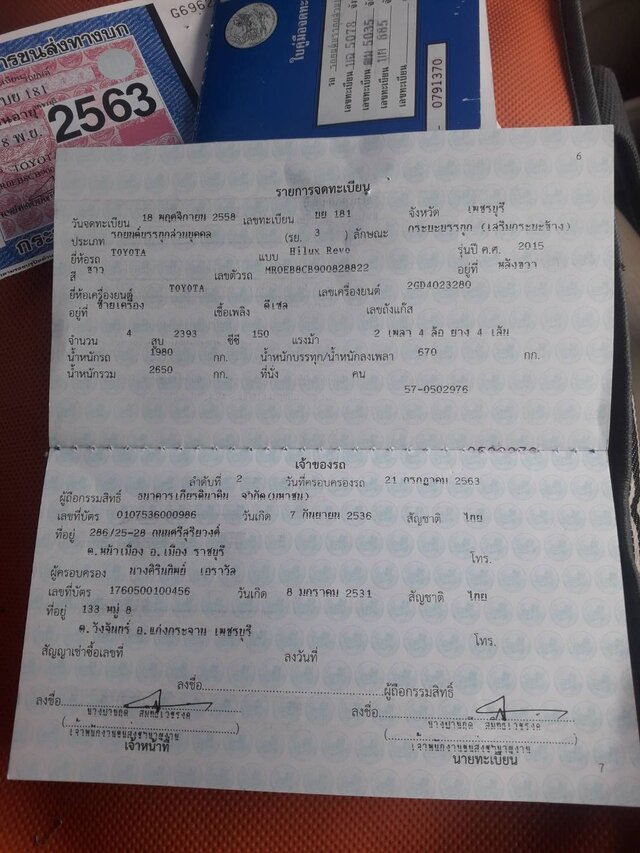 การขนส่งทางบก
บย 181
2563
8 พ.ย.
TOYOTA
G6962
ใบคู่มือจดทะ
เลขทะเบียน บฉ 5078
เลขทะเบียน ฒฌ 5035
เลขทะเบียน บห 885
0791370
6
รายการจดทะเบียน
วันจดทะเบียน 18 พฤศจิกายน 2558 เลขทะเบียน บย 181 จังหวัด เพชรบุรี
ประเภท รถยนต์บรรทุกส่วนบุคคล (รย. 3 ) ลักษณะ กระบะบรรทุก (เสริมกระบะข้าง)
ยี่ห้อรถ TOYOTA แบบ Hilux Revo รุ่นปี ค.ศ. 2015
สี ขาว เลขตัวรถ MR0EB8CB900828822 อยู่ที่ หลังขวา
ยี่ห้อเครื่องยนต์ TOYOTA เลขเครื่องยนต์ 2GD4023280
อยู่ที่ ซ้ายเครื่อง เชื้อเพลิง ดีเซล เลขถังแก๊ส
จำนวน 4 สูบ 2393 ซีซี 150 แรงม้า 2 เพลา 4 ล้อ ยาง 4 เส้น
น้ำหนักรถ 1980 กก. น้ำหนักบรรทุก/น้ำหนักลงเพลา 670 กก.
น้ำหนักรวม 2650 กก. ที่นั่ง คน
57-0502976
เจ้าของรถ
ลำดับที่ 2 วันที่ครอบครองรถ 21 กรกฎาคม 2563
ผู้ถือกรรมสิทธิ์ ธนาคารเกียรตินาคิน จำกัด(มหาชน)
เลขที่บัตร 0107536000986 วันเกิด 7 กันยายน 2536 สัญชาติ ไทย
ที่อยู่ 286/25-28 ถนนศรีสุริยวงศ์
ต.หน้าเมือง อ.เมือง ราชบุรี โทร.
ผู้ครอบครอง นางศิรินทิพย์ เอราวัล
เลขที่บัตร 1760500100456 วันเกิด 8 มกราคม 2531 สัญชาติ ไทย
ที่อยู่ 133 หมู่ 8
ต.วังจันทร์ อ.แก่งกระจาน เพชรบุรี โทร.
สัญญาเช่าซื้อเลขที่ ลงวันที่
ลงชื่อ ผู้ถือกรรมสิทธิ์
ลงชื่อ ลงชื่อ
เจ้าพนักงานขนส่งชำนาญงาน เจ้าพนักงานขนส่งชำนาญงาน
เจ้าหน้าที่ นายทะเบียน
7